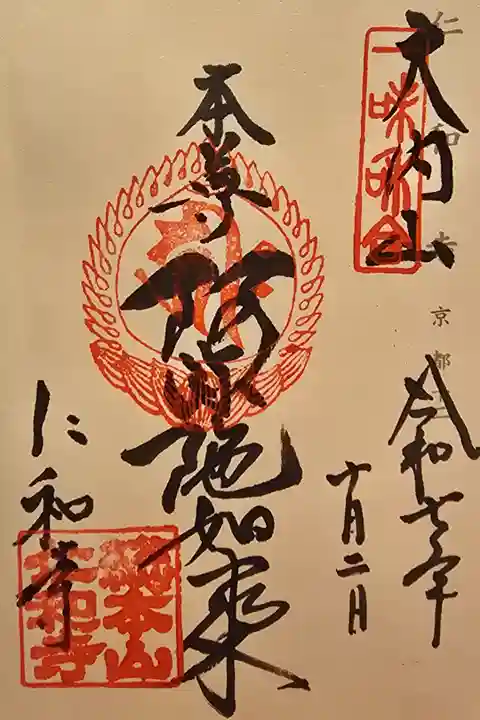 仁和寺 京都
大内山
一味和合
令和七年
十月二日
本尊
阿弥陀如来
仁和寺
総本山
仁和寺